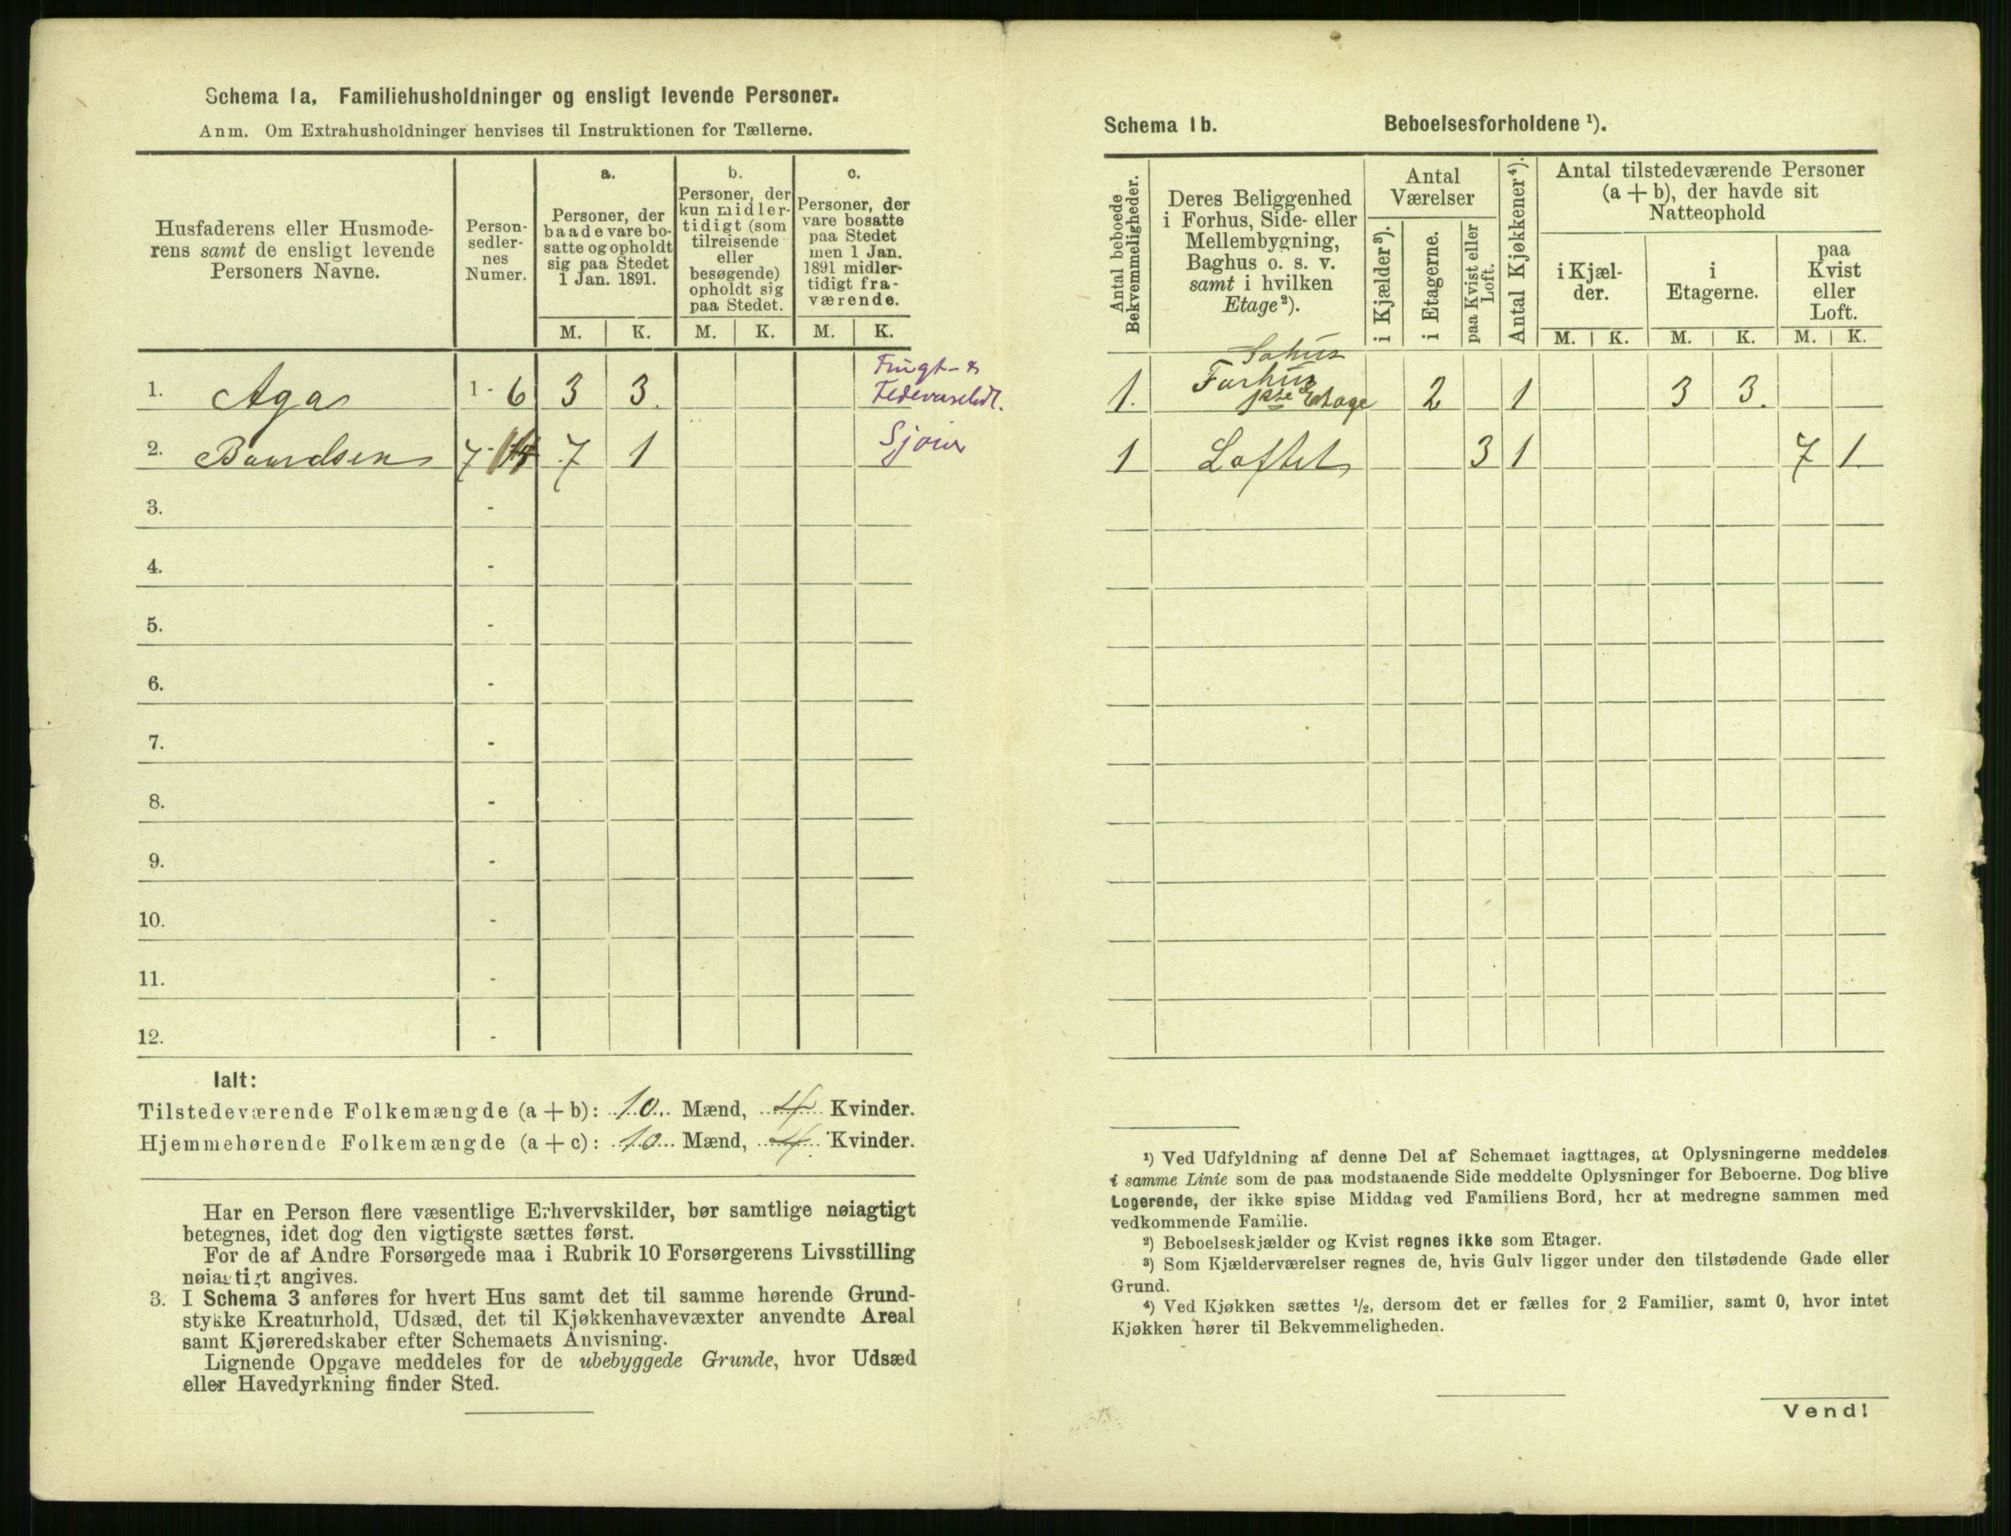 Schema 1a. Familiehusholdninger og ensligt levende Personer.
Anm. Om Extrahusholdninger henvises til Instruktionen for Tællerne.
Husfaderens eller Husmode-
rens samt de ensligt levende
Personers Navne.
Person-
sedler-
nes
Numer.
a.
Personer, der
baade vare bo-
satte og opholdt
sig paa Stedet
1 Jan. 1891.
b.
Personer, der
kun midler-
tidigt (som
tilreisende
eller
besøgende)
opholdt sig
paa Stedet.
c.
Personer, der
vare bosatte
paa Stedet
men 1 Jan.
1891 midler-
tidigt fra-
værende.
M. K. M. K. M. K.
1. Aga 1 - 6 3 3
2. Baardsen 7 - 14 7 1
3. -
4. -
5. -
6. -
7. -
8. -
9. -
10. -
11. -
12. -
Ialt:
Tilstedeværende Folkemængde (a + b): 10 Mænd, 4 Kvinder.
Hjemmehørende Folkemængde (a + c): 10 Mænd, 4 Kvinder.
Har en Person flere væsentlige Erhvervskilder, bør samtlige nøiagtigt
betegnes, idet dog den vigtigste sættes først.
For de af Andre Forsørgede maa i Rubrik 10 Forsørgerens Livsstilling
nøiagtigt angives.
3. I Schema 3 anføres for hvert Hus samt det til samme hørende Grund-
stykke Kreaturhold, Udsæd, det til Kjøkkenhavevæxter anvendte Areal
samt Kjøreredskaber efter Schemaets Anvisning.
Lignende Opgave meddeles for de ubebyggede Grunde, hvor Udsæd
eller Havedyrkning finder Sted.
Schema 1b. Beboelsesforholdene ¹).
Antal beboede
Bekvemmeligheder.
Deres Beliggenhed
i Forhus, Side- eller
Mellembygning,
Baghus o. s. v.
samt i hvilken
Etage²).
Antal
Værelser
i Kjælder³).
i Etagerne.
paa Kvist eller
Loft.
Antal Kjøkkener⁴).
Antal tilstedeværende Personer
(a + b), der havde sit
Natteophold
i Kjæl-
der.
i
Etagerne.
paa
Kvist
eller
Loft.
M. K. M. K. M. K.
1. Forhus 1ste Etage 2 1 3 3.
1 Loftet 3 1 7 1
¹) Ved Udfyldning af denne Del af Schemaet iagttages, at Oplysningerne meddeles
i samme Linie som de paa modstaaende Side meddelte Oplysninger for Beboerne. Dog blive
Logerende, der ikke spise Middag ved Familiens Bord, her at medregne sammen med
vedkommende Familie.
²) Beboelseskjælder og Kvist regnes ikke som Etager.
³) Som Kjælderværelser regnes de, hvis Gulv ligger under den tilstødende Gade eller
Grund.
⁴) Ved Kjøkken sættes ½, dersom det er fælles for 2 Familier, samt 0, hvor intet
Kjøkken hører til Bekvemmeligheden.
Vend!